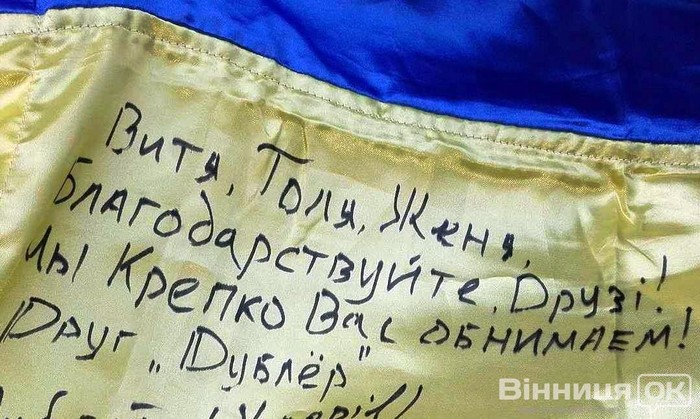 Витя, Толя, Женя,
Благодарствуйте, Друзі!
Мы Крепко Вас обнимаем!
Друг "Дублёр"
Вінниця OK